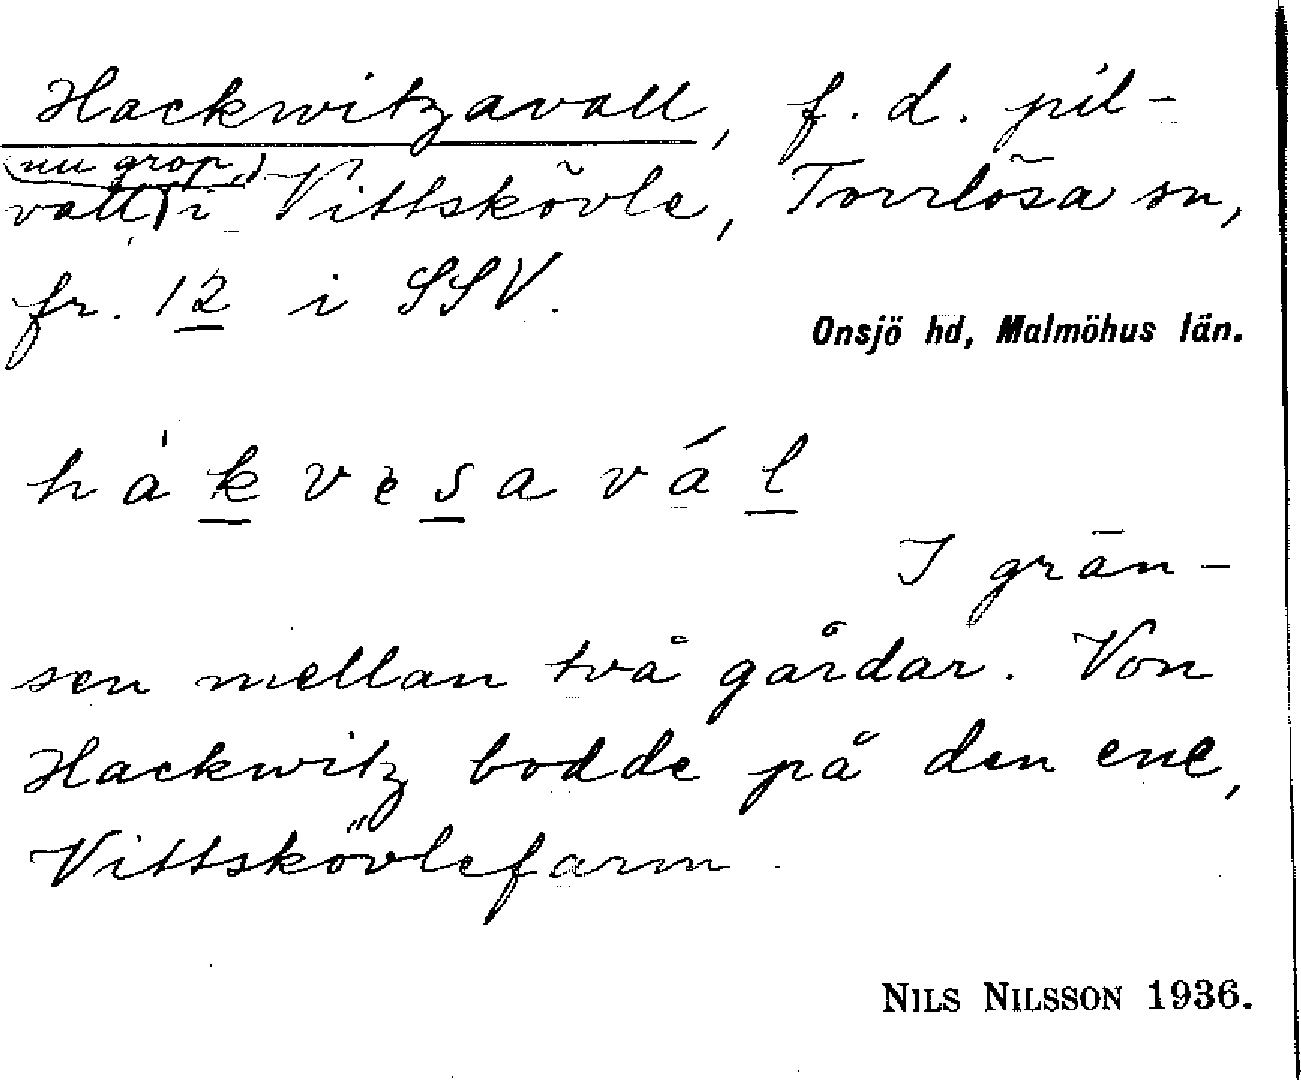 Hackwitzavall, f. d. pil-
(nu grop,)
vall) i Vittskövle, Torrlösa sn,
fr. 12 i SSV.
Onsjö hd, Malmöhus län.
hàkvesavál
I grän-
sen mellan två gårdar. Von
Hackwitz bodde på den ene,
Vittskövlefarm.
NILS NILSSON 1936.